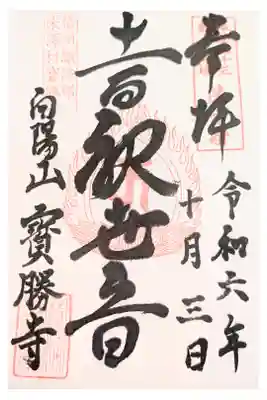 奉拝
令和六年
十月三日
十一面観世音
向陽山 寶勝寺